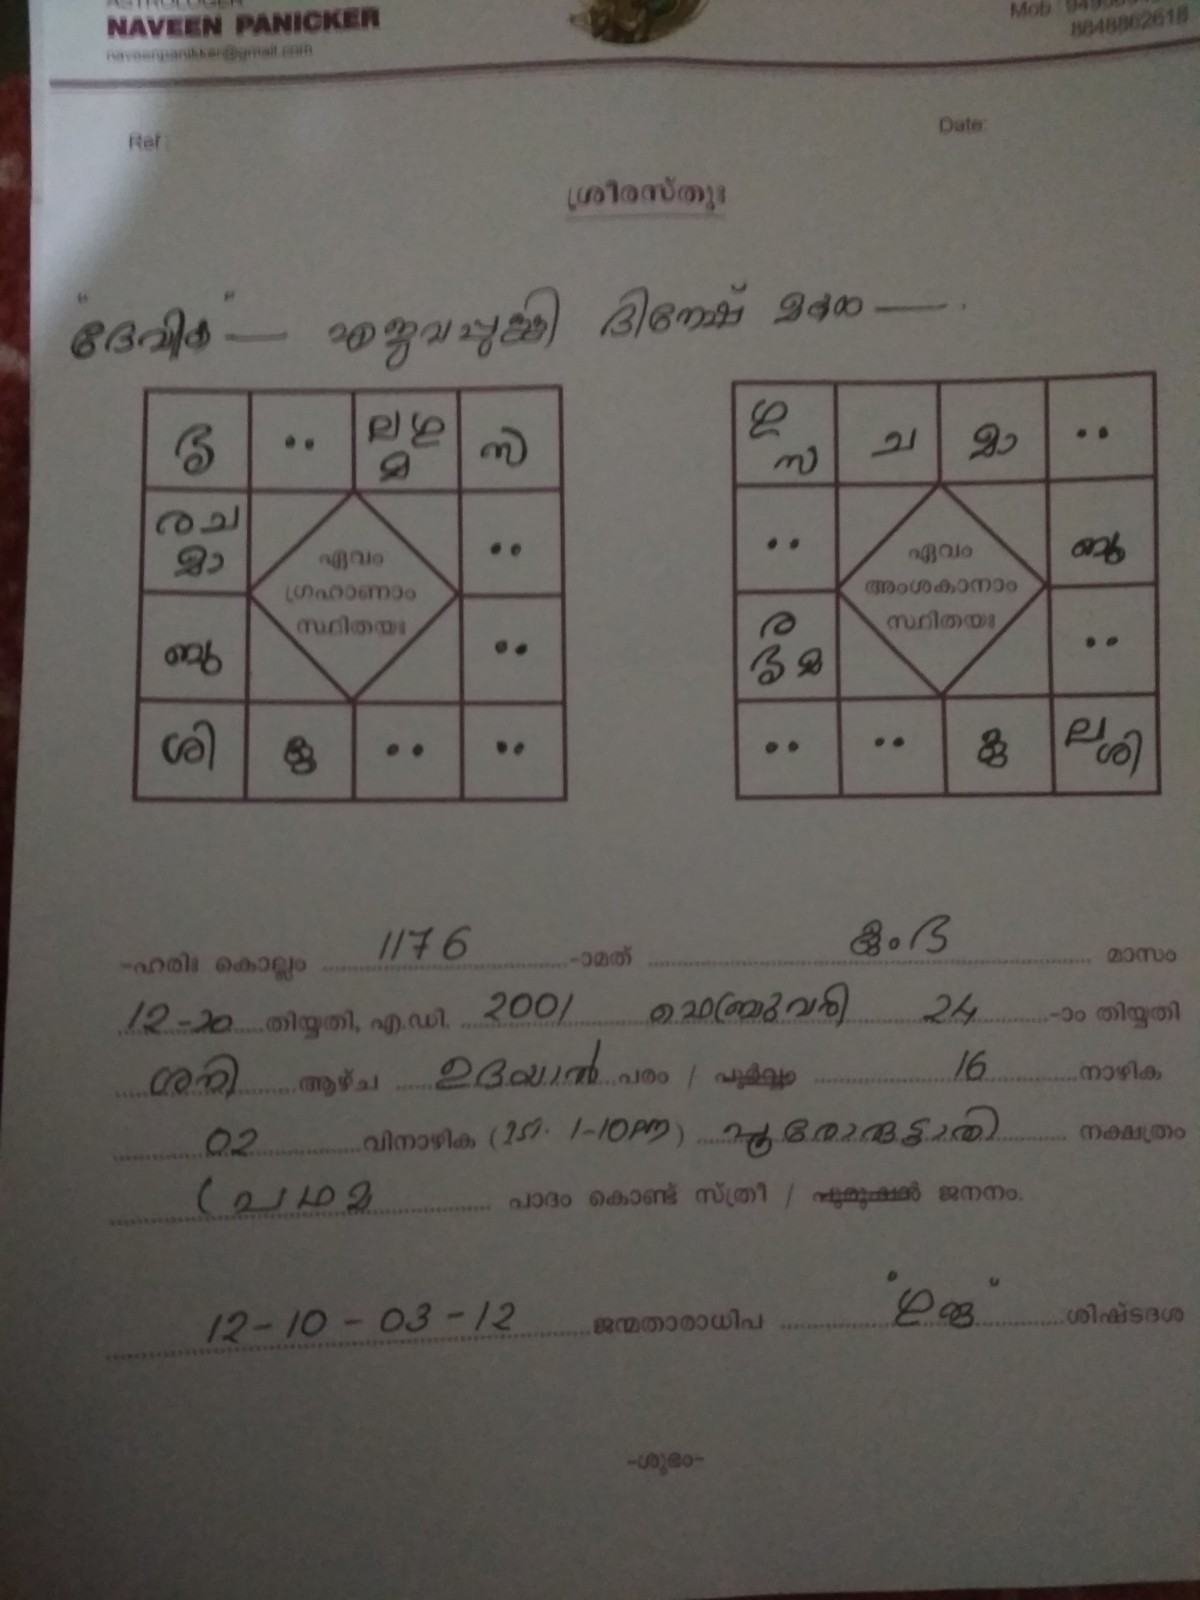 ASTROLOGER
NAVEEN PANICKER
naveenpanikker@gmail.com
Mob :
8848862618
Ref :
Date:
ശ്രീരസ്തുഃ
"ദേവിക" — ദിനേഷ് മകൾ —
ശു
..
ല ഗു
മ
സ
ര ച
മാ
ഏവം
ഗ്രഹാണാം
സ്ഥിതയഃ
..
ബു
..
ശി
കു
..
..
ഗു
സ
ച
മാ
..
..
ഏവം
അംശകാനാം
സ്ഥിതയഃ
ബു
ര
ശു മ
..
..
..
കു
ല
ശി
-ഹരിഃ കൊല്ലം 1176 -ാമത് കുംഭ മാസം
12-20 തിയ്യതി, എ.ഡി. 2001 ഫെബ്രുവരി 24 -ാം തിയ്യതി
ശനി ആഴ്ച ഉദയാൽ പരം / പൂർവ്വം 16 നാഴിക
02 വിനാഴിക ( 1-10 PM) പൂരോരുട്ടാതി നക്ഷത്രം
(പ്രഥമ പാദം കൊണ്ട് സ്ത്രീ / പുരുഷൻ ജനനം.
12-10-03-12 ജന്മതാരാധിപ "ഗുരു" ശിഷ്ടദശ
-ശുഭം-